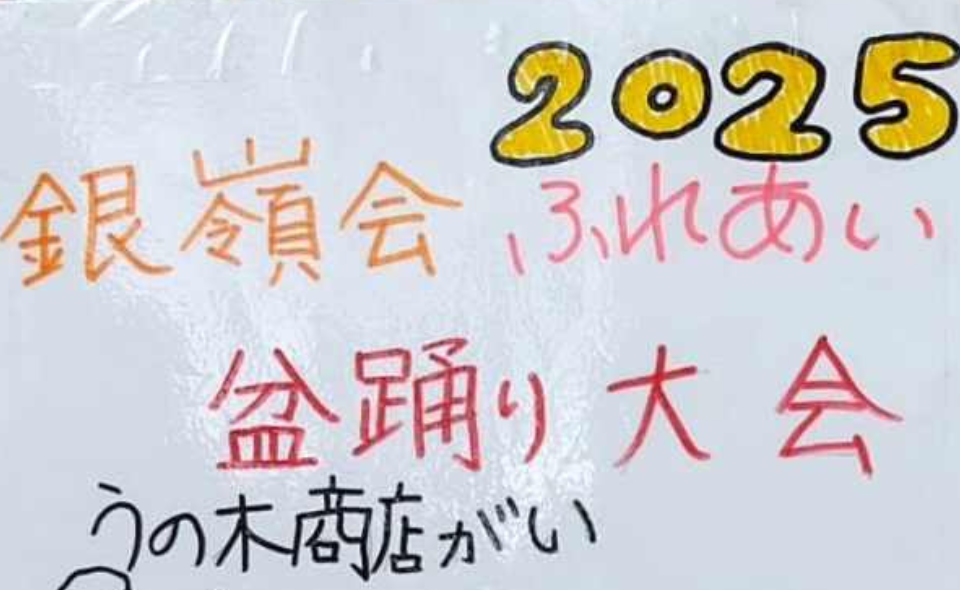 2025
銀嶺会 ふれあい
盆踊り大会
うの木商店がい